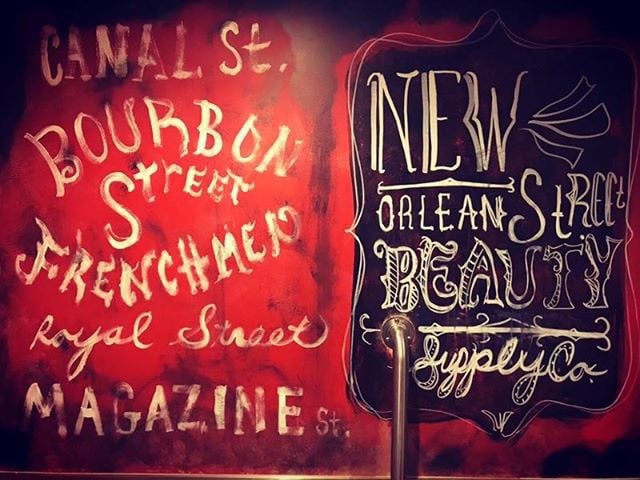 CANAL St.
BOURBON
STREET
FRENCHMEN
Royal Street
MAGAZINE St.
NEW
ORLEAN STREET
BEAUTY
Supply Co.